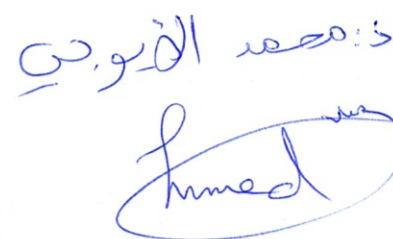 ذ: محمد الأيوبي
Hmed